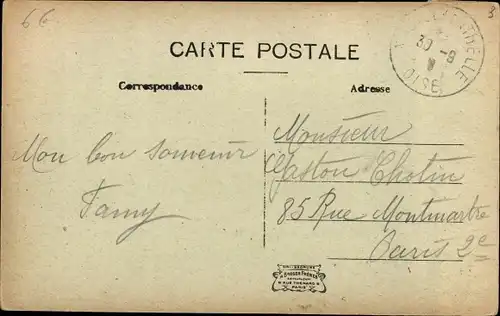 66
3
CARTE POSTALE
Correspondance
Adresse
30 -8
OISE
Mon bon souvenir
Fanny
Monsieur
Gaston Chotin
85 Rue Montmartre
Paris 2e
PARIS